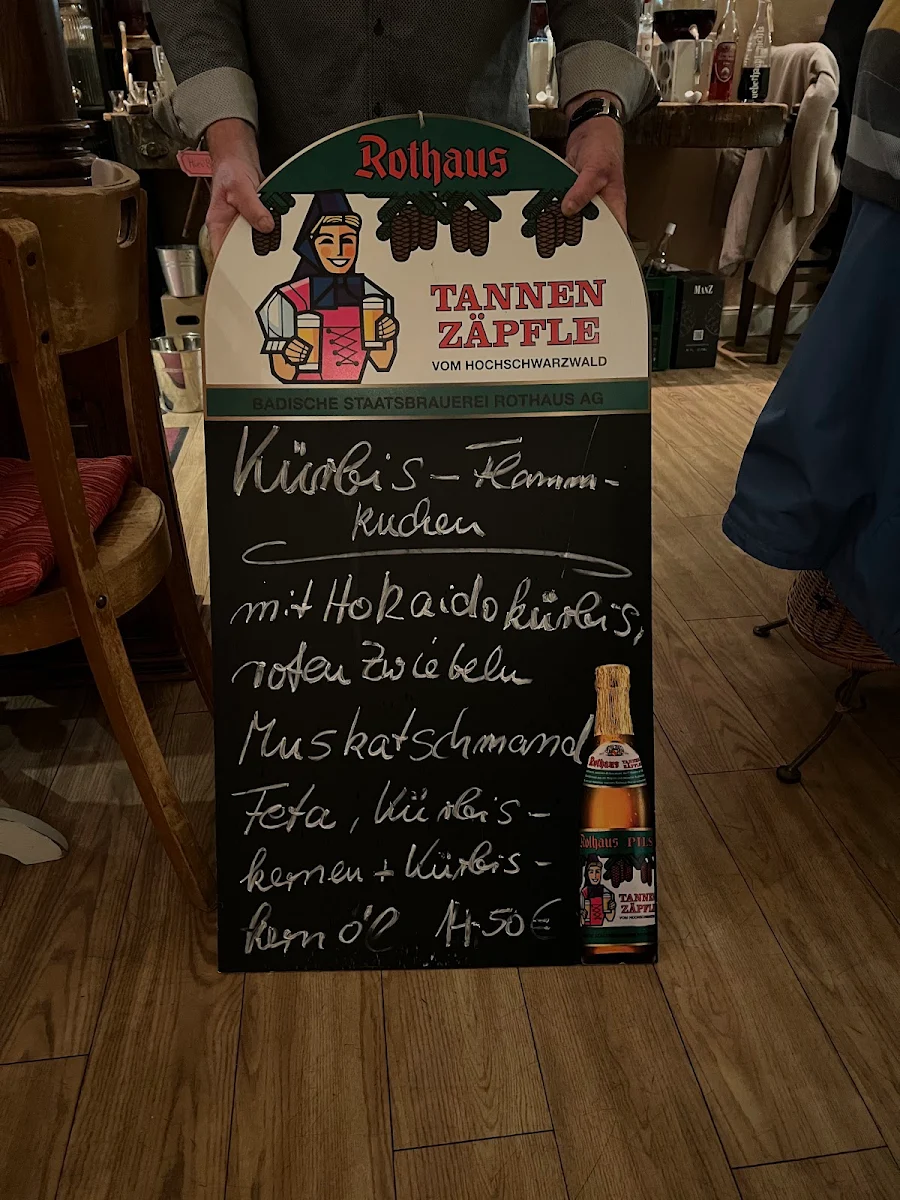 Rothaus
TANNEN
ZÄPFLE
VOM HOCHSCHWARZWALD
BADISCHE STAATSBRAUEREI ROTHAUS AG
Kürbis - Flamm-
kuchen
mit Hokaidokürbis,
roten Zwiebeln
Muskatschmand
Feta, Kürbis-
kernen + Kürbis-
kernöl 14.50€
Rothaus PILS
TANNEN
ZÄPFLE
MANZ